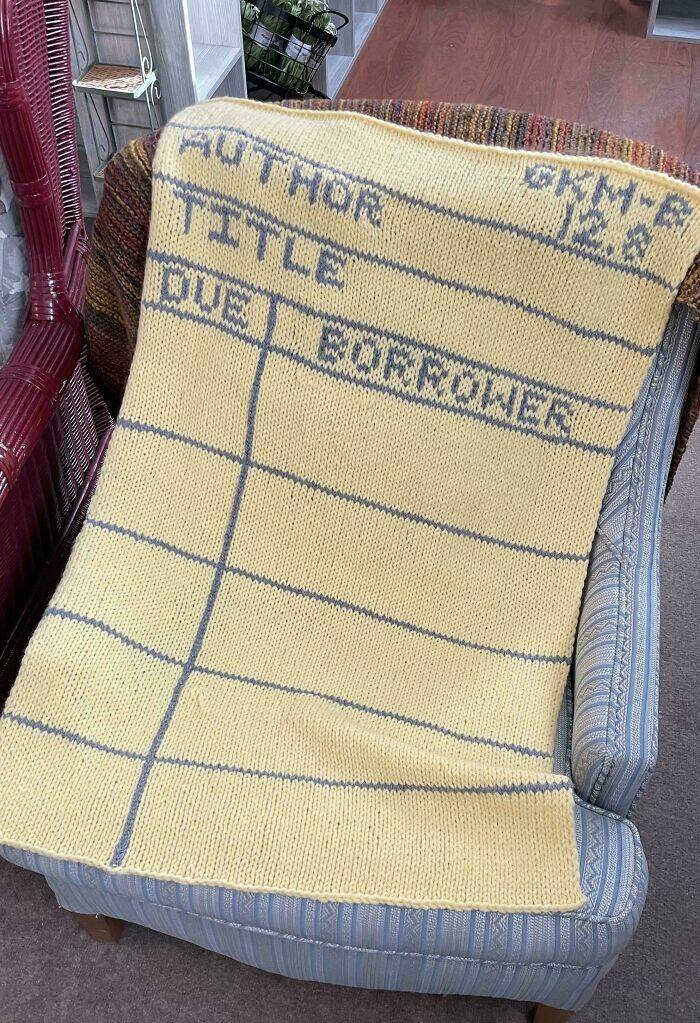 AUTHOR GKM-B
12.8
TITLE
DUE BORROWER